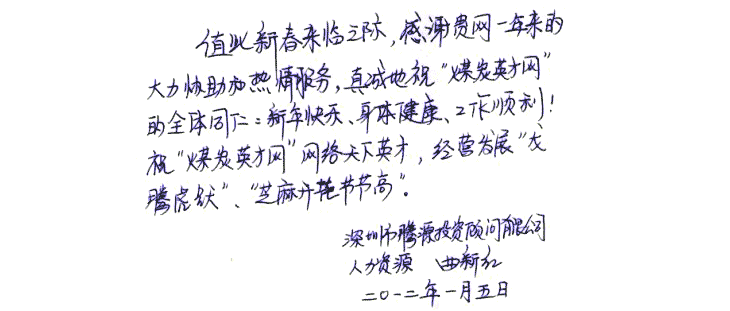 值此新春来临之际，感谢贵网一年来的
大力协助和热情服务，真诚地祝“煤炭英才网”
的全体同仁：新年快乐、身体健康、工作顺利！
祝“煤炭英才网”网络天下英才，经营发展“龙
腾虎跃”、“芝麻开花节节高”。
深圳市腾源投资顾问有限公司
人力资源 曲新红
二〇一二年一月五日